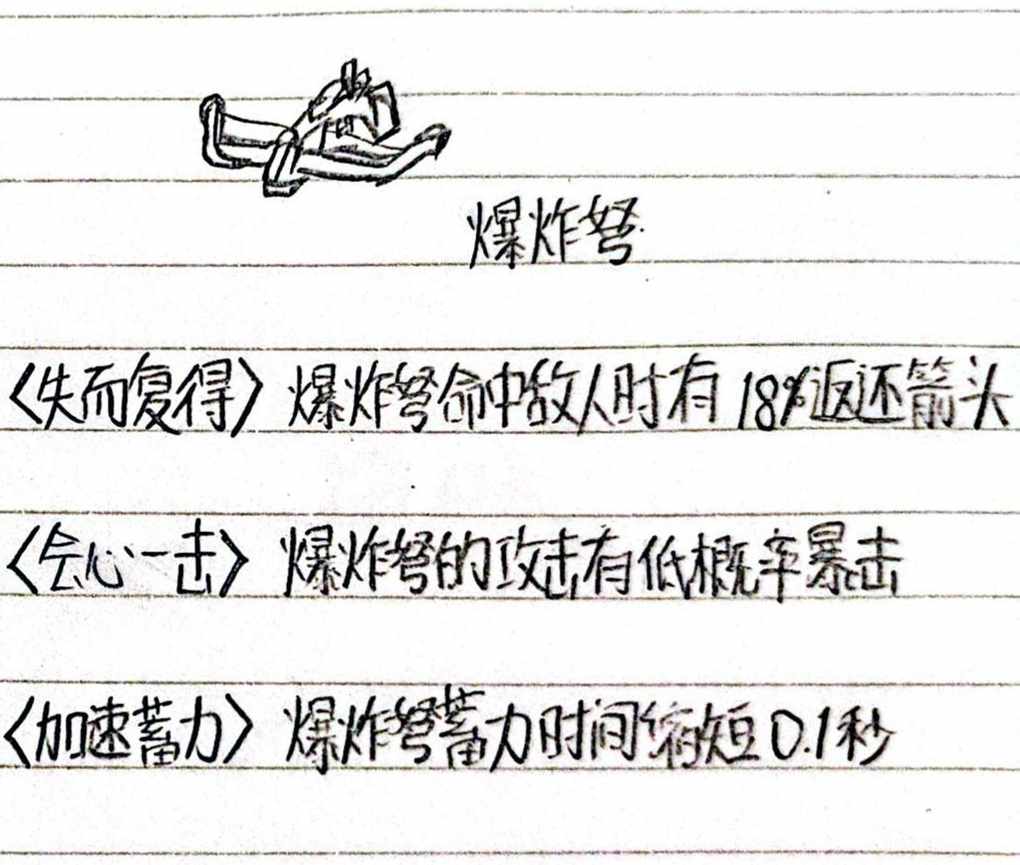 爆炸弩
〈失而复得〉爆炸弩命中敌人时有18%返还箭头
〈会心一击〉爆炸弩的攻击有低概率暴击
〈加速蓄力〉爆炸弩蓄力时间缩短0.1秒